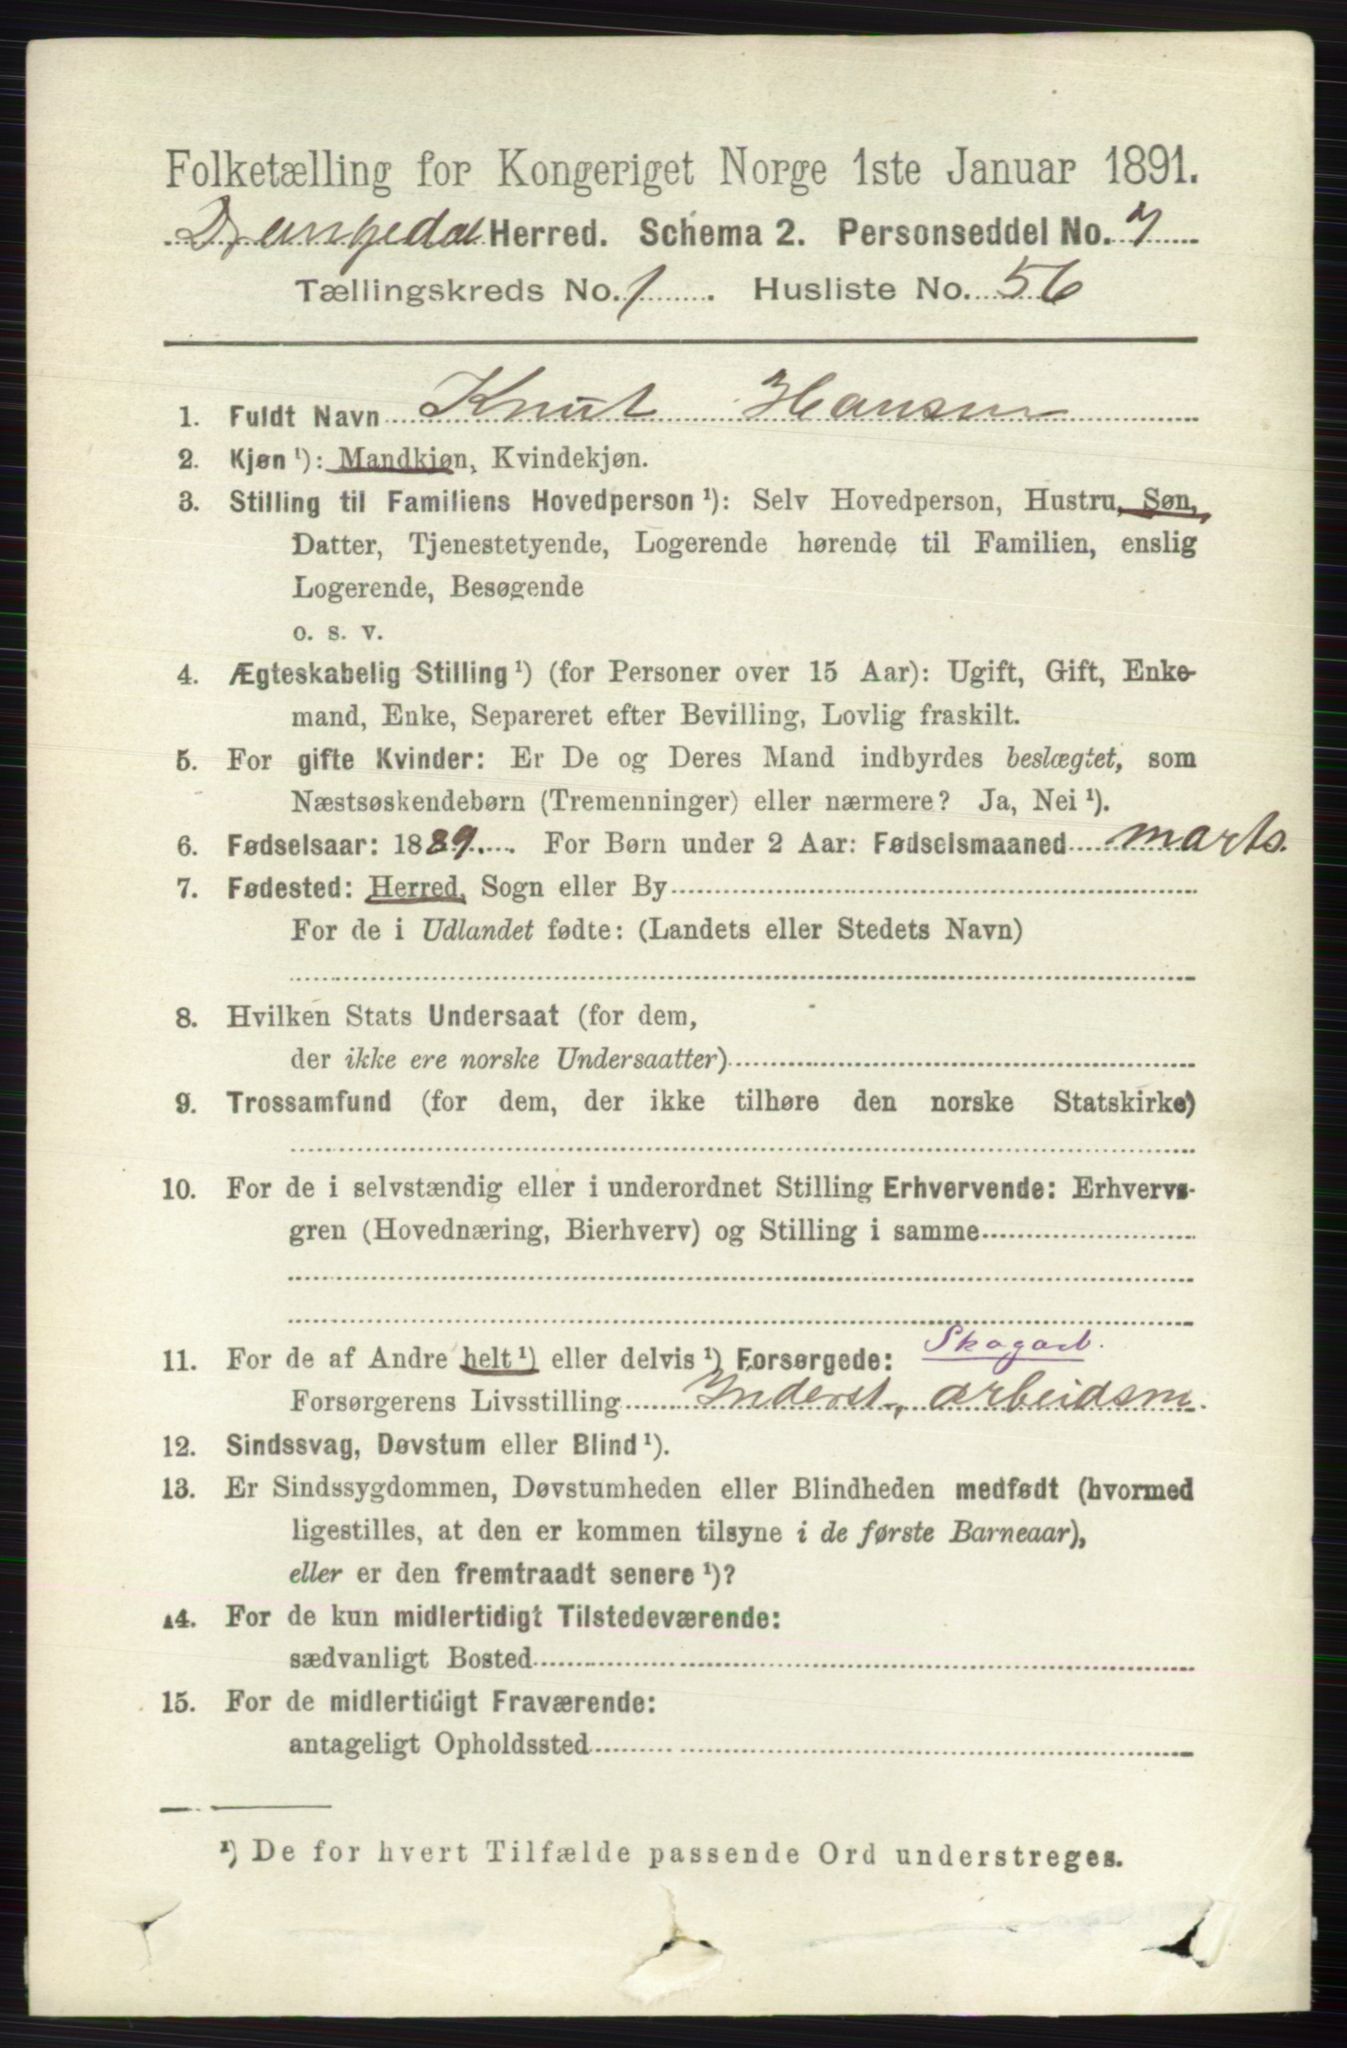 Folketælling for Kongeriget Norge 1ste Januar 1891.
Drangedal Herred. Schema 2. Personseddel No. 7
Tællingskreds No. 1. Husliste No. 56
1. Fuldt Navn Knut Hansen
2. Kjøn ¹): Mandkjøn, Kvindekjøn.
3. Stilling til Familiens Hovedperson ¹): Selv Hovedperson, Hustru, Søn,
Datter, Tjenestetyende, Logerende hørende til Familien, enslig
Logerende, Besøgende
o. s. v.
4. Ægteskabelig Stilling ¹) (for Personer over 15 Aar): Ugift, Gift, Enke-
mand, Enke, Separeret efter Bevilling, Lovlig fraskilt.
5. For gifte Kvinder: Er De og Deres Mand indbyrdes beslægtet, som
Næstsøskendebørn (Tremenninger) eller nærmere? Ja, Nei ¹).
6. Fødselsaar: 1889. For Børn under 2 Aar: Fødselsmaaned marts.
7. Fødested: Herred, Sogn eller By
For de i Udlandet fødte: (Landets eller Stedets Navn)
8. Hvilken Stats Undersaat (for dem,
der ikke ere norske Undersaatter)
9. Trossamfund (for dem, der ikke tilhøre den norske Statskirke)
10. For de i selvstændig eller i underordnet Stilling Erhvervende: Erhvervs-
gren (Hovednæring, Bierhverv) og Stilling i samme
Skogarb.
11. For de af Andre helt ¹) eller delvis ¹) Forsørgede:
Forsørgerens Livsstilling Inderst, arbeidsm.
12. Sindssvag, Døvstum eller Blind ¹).
13. Er Sindssygdommen, Døvstumheden eller Blindheden medfødt (hvormed
ligestilles, at den er kommen tilsyne i de første Barneaar),
eller er den fremtraadt senere ¹)?
14. For de kun midlertidigt Tilstedeværende:
sædvanligt Bosted
15. For de midlertidigt Fraværende:
antageligt Opholdssted
¹) De for hvert Tilfælde passende Ord understreges.